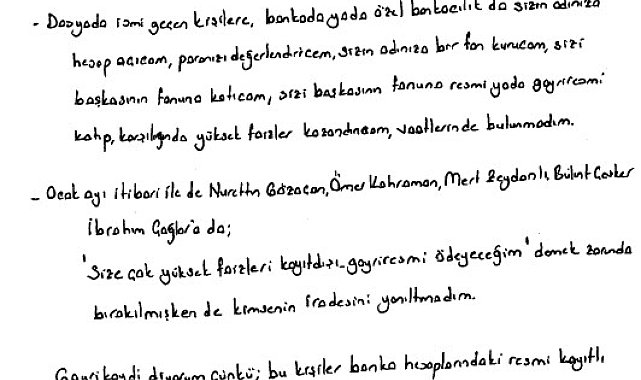 - Dosyada ismi geçen kişilere, bankada yada özel bankacılık da sizin adınıza
hesap açıcam, paranızı değerlendiricem, sizin adınıza bir fon kurucam, sizi
başkasının fonuna katıcam, sizi başkasının fonuna resmi yada gayriresmi
katıp, karşılığında yüksek faizler kazandırıcam, vaatlerinde bulunmadım.
- Ocak ayı itibari ile de Nurettin Gözaçan, Ömer Kahraman, Mert Zeydanlı, Bülent Çeviker
İbrahim Çağlar'a da;
'Size çok yüksek faizleri kayıtdışı-gayriresmi ödeyeceğim' demek zorunda
bırakılmışken de kimsenin iradesini yanıltmadım.
Gayrikaydi diyorum çünkü; bu kişiler banka hesaplarındaki resmi kayıtlı